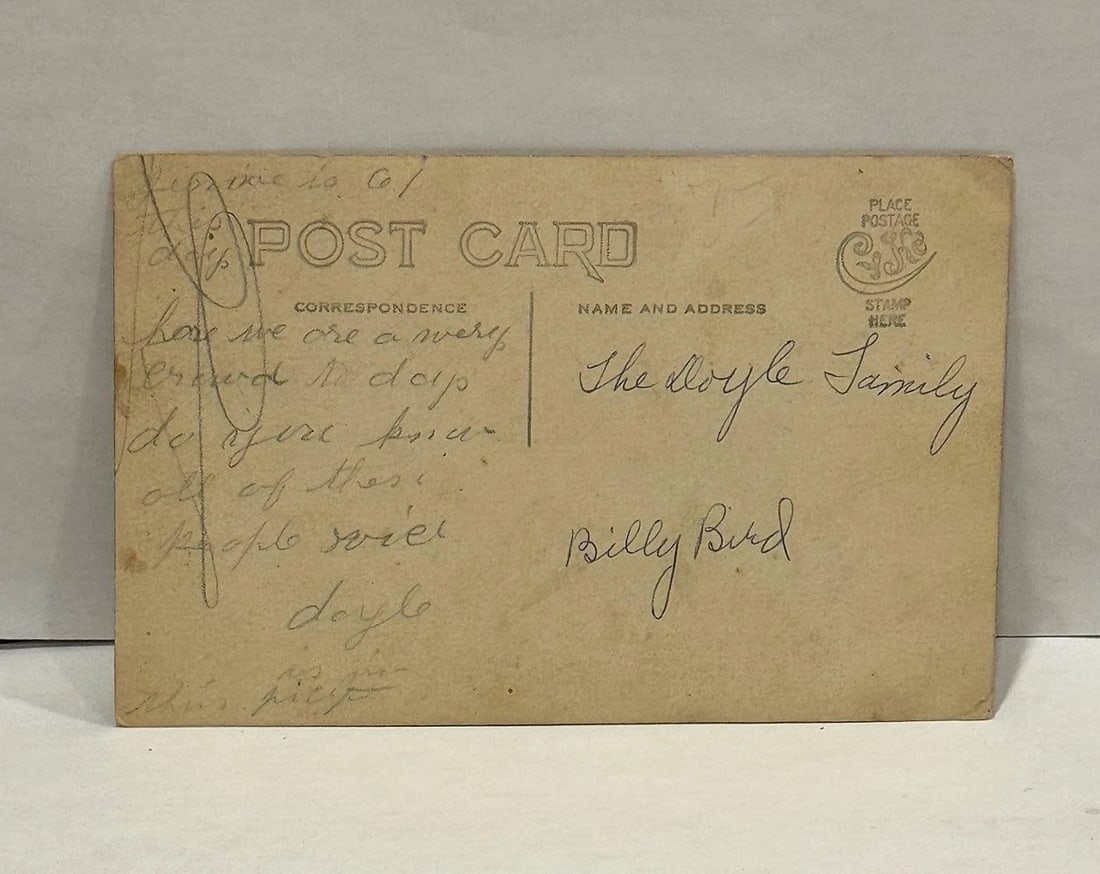 is 61
this
day
POST CARD
PLACE
POSTAGE
STAMP
HERE
CORRESPONDENCE
NAME AND ADDRESS
here we are a wery
crowd to day
do you know
all of these
people
doyle
is in
this
The Doyle Family
Billy Bird